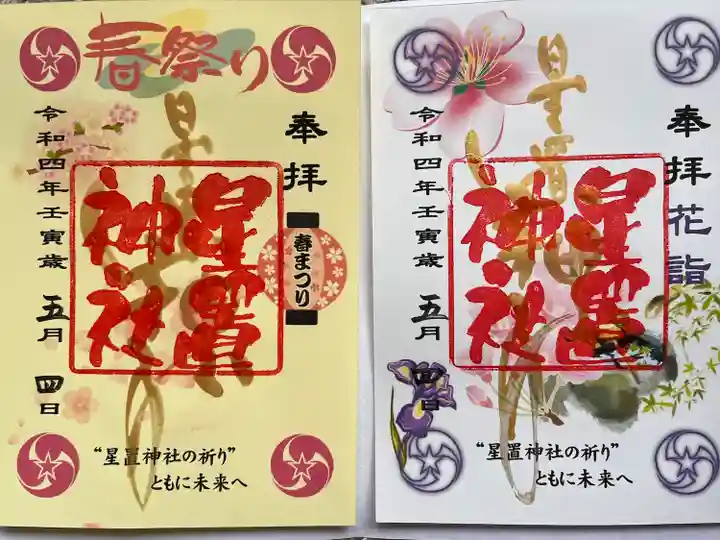 春祭り
奉拝
星置神社
星置
神社
春まつり
令和四年壬寅歳 五月 四日
“星置神社の祈り”
ともに未来へ
奉拝 花詣
星置神社
星置
神社
令和四年壬寅歳 五月 四日
“星置神社の祈り”
ともに未来へ